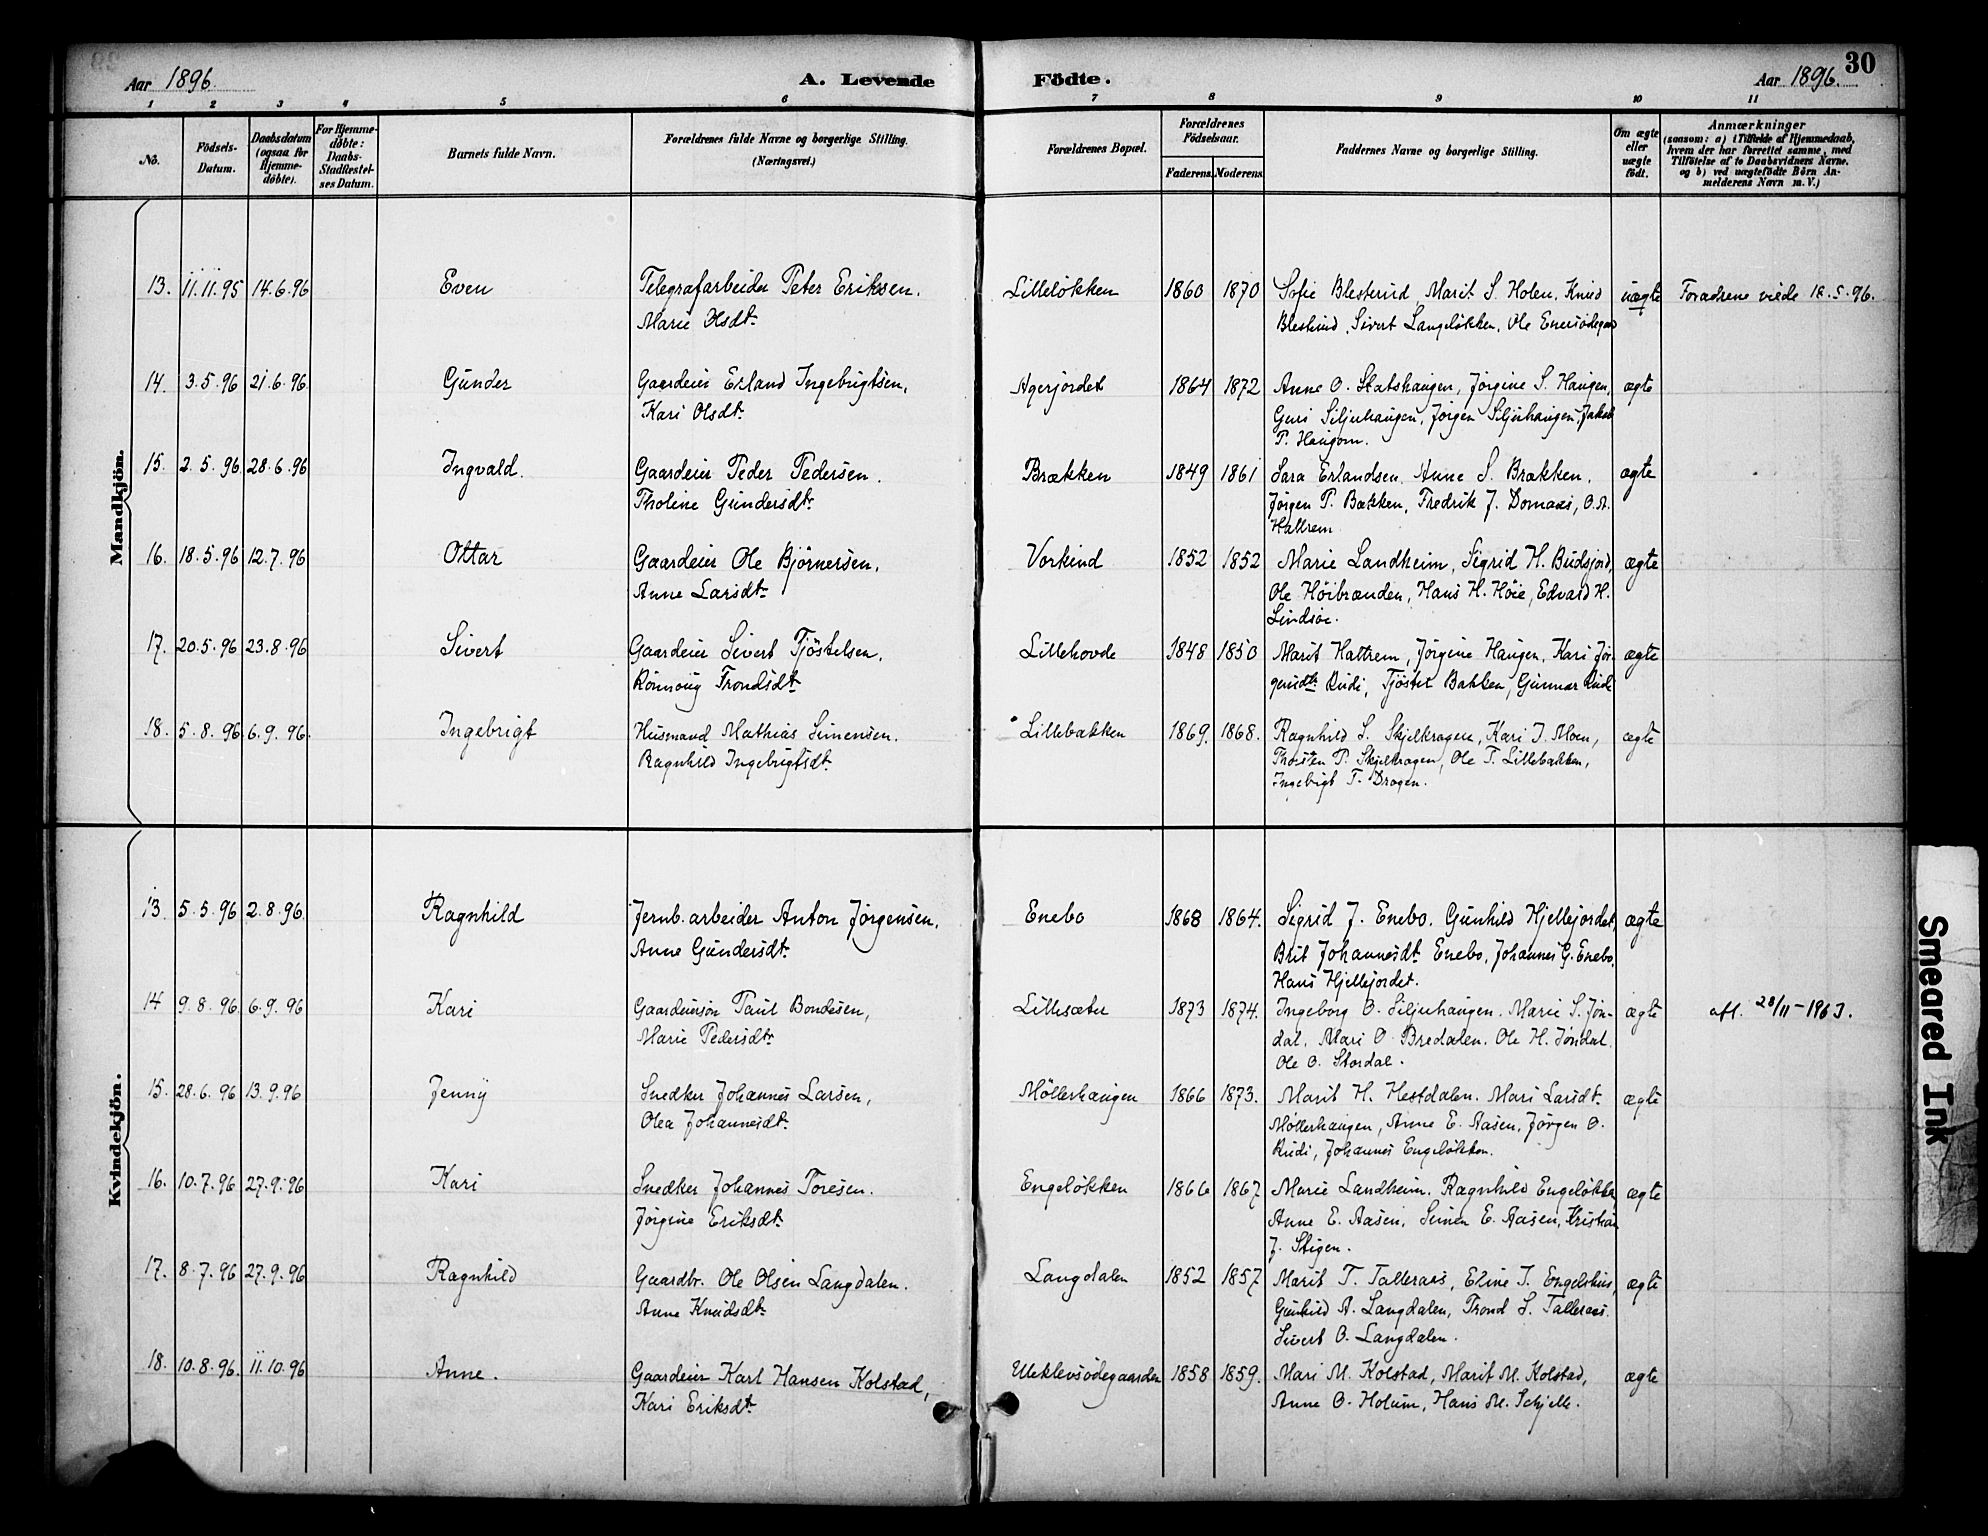 30
Aar 1896. A. Levende Födte. Aar 1896.
1 2 3 4 5 6 7 8 9 10 11
No. Födsels-Datum. Daabsdatum (ogsaa for Hjemme-döbte). For Hjemme-döbte: Daabs-Stadfæstel-ses Datum. Barnets fulde Navn. Forældrenes fulde Navne og borgerlige Stilling. (Næringsvei.) Forældrenes Bopæl. Forældrenes Födselsaar. Faderens. Moderens. Faddernes Navne og borgerlige Stilling. Om ægte eller uægte födt. Anmærkninger (saasom: a) i Tilfælde af Hjemmedaab, hvem der har forrettet samme, med Tilföielse af to Daabsvidners Navne. og b) ved uægtefödte Börn An-melderens Navn m. V.)
Mandkjön.
13. 11.11.95 14.6.96 Even Telegrafarbeider Peter Eriksen. Lilleløkken 1860 1870 Sofie Blesterud, Marit S. Holen, Knud uægte Forældrene viede 18.5.96.
Marie Olsdt. Blesterud, Sivert Langeløkken, Ole
14. 3.5.96 21.6.96 Gunder Gaardeier Erland Ingebrigtsen, Agerjordet 1864 1872 Anne O. Statshaugen, Jørgine S. Haugen, ægte
Kari Olsdt. Guri Siljuhaugen, Jørgen Siljuhaugen, Jakob
P. Haugom.
15. 2.5.96 28.6.96 Ingvald. Gaardeier Peder Pedersen. Brækken 1849 1861 Sara Erlandsen, Anne S. Brækken, ægte
Tholine Gundersdtr. Jørgen P. Bækken, Fredrik J. Domaas, O. A.
Hattrem
16. 18.5.96 12.7.96 Ottar Gaardeier Ole Bjørnersen, Vorkind 1852 1852 Marie Landheim, Sigrid H. Budsjord, ægte
Anne Larsdt. Ole Höibrænden, Hans H. Höie, Edvard H.
Lindsöe.
17. 20.5.96 23.8.96 Sivert Gaardeier Sivert Tjöstelsen, Lillehovde 1848 1850 Marit Hattrem, Jørgine Haugen, Kari Jör- ægte
Rönnoug Trondsdt. gensdt. Rudi, Tjöstel Bakken, Gunnar Rudi
18. 5.8.96 6.9.96. Ingebrigt Husmand Mathias Simensen. Lillebakken 1869. 1868. Ragnhild S. Skjelkragen, Kari I. Moen, ægte
Ragnhild Ingebrigtsdt. Thorsten P. Skjelkragen, Ole T. Lillebakken,
Ingebrigt T. Drogen.
Kvindekjön.
13. 5.5.96 2.8.96 Ragnhild Jernb.arbeider Anton Jørgensen. Enebo 1868 1864. Sigrid J. Enebo. Gunhild Hjellejordet, ægte
Anne Gundersdt. Brit Johannesdt. Enebo, Johannes G. Enebo,
Hans Hjellejordet.
14 9.8.96 6.9.96 Kari Gaardeiersön Paul Bondesen, Lillesæter 1873 1874. Ingeborg O. Siljuhaugen. Marie S. Jön- ægte afl. 28/11-1963.
Marie Pedersdtr. dal, Mari O. Bredalen, Ole H. Jöndal,
Ole O. Stordal.
15. 28.6.96 13.9.96 Jenny Snedker Johannes Larsen, Möllerhaugen 1866 1873. Marit H. Hestdalen. Mari Larsdt. ægte
Olea Johannesdt. Möllerhaugen, Anne E. Aasen, Jörgen O.
Rudi, Johannes Engeløkken.
16. 10.7.96 27.9.96 Kari Snedker Johannes Toresen. Engeløkken 1866 1867 Marie Landheim. Ragnhild Engeløkken, ægte
Jørgine Eriksdt. Anne E. Aasen, Simen E. Aasen, Kristian
J. Stigen.
17. 8.7.96 27.9.96 Ragnhild Gaardbr. Ole Olsen Langdalen. Langdalen 1852 1857 Marit T. Talleraas, Eline I. Engelshus, ægte
Anne Knudsdt. Gunhild A. Langdalen, Trond S. Talleraas.
Sivert O. Langdalen.
18. 10.8.96. 11.10.96 Anne. Gaardeier Karl Hansen Kolstad, Ueklevsödegaarden 1858 1859. Mari M. Kolstad, Marit M. Kolstad, ægte
Kari Eriksdt. Anne O. Holum, Hans M. Schjelle.
Smeared Ink